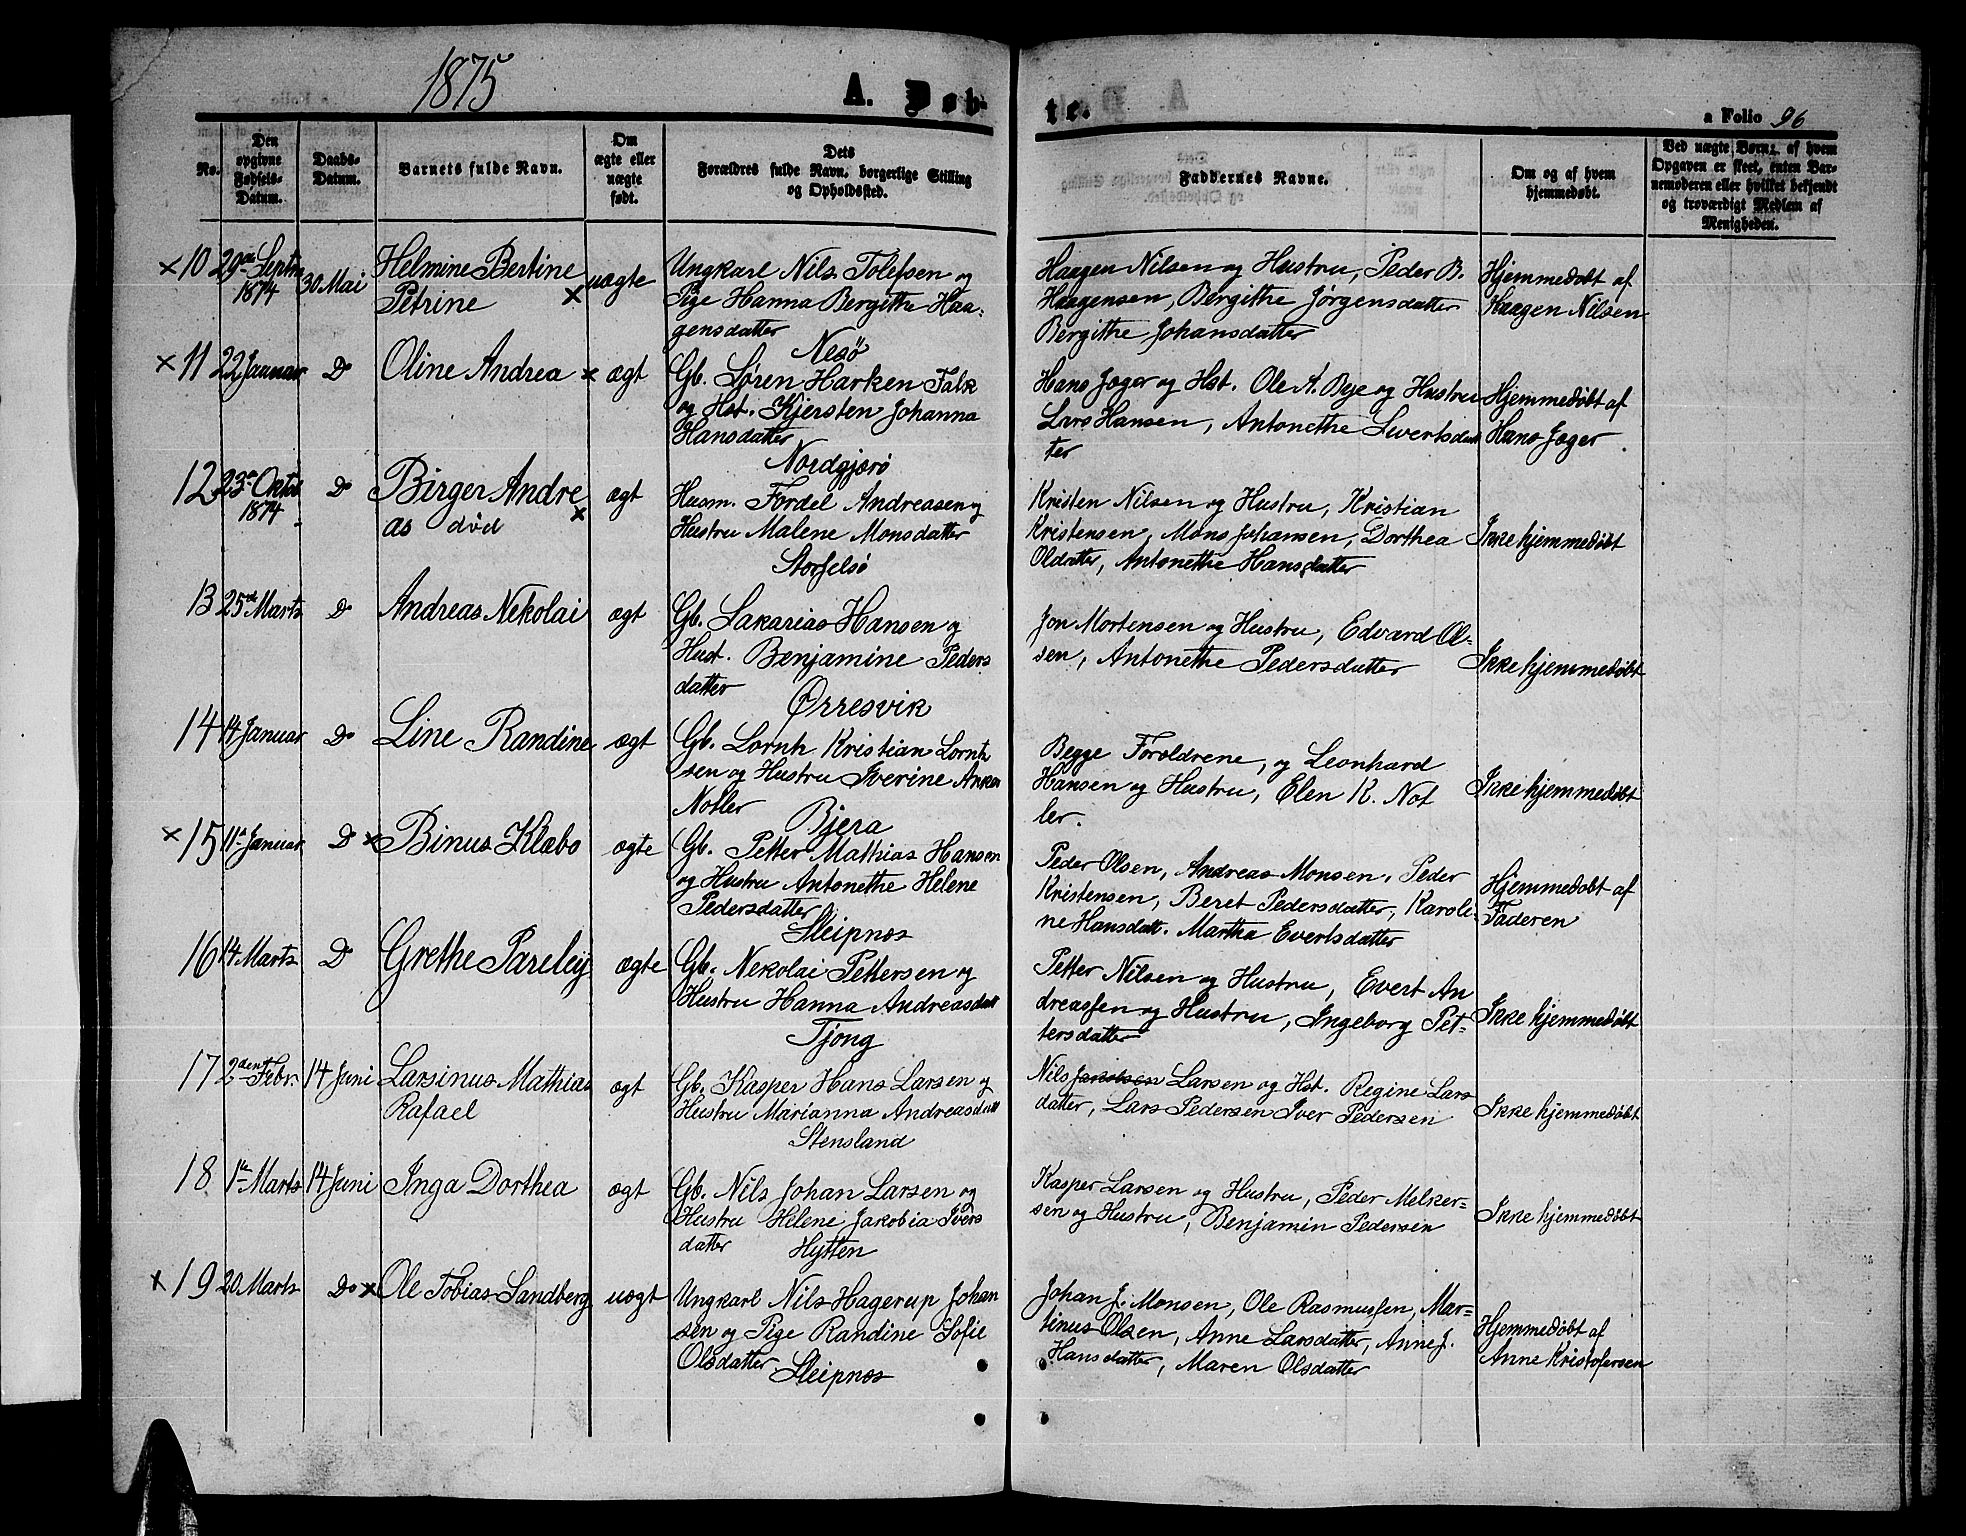 1875
A. Døb-
te.
a Folio 96
No.
Den
opgivne
Fødsels-
Datum.
Daabs-
Datum.
Barnets fulde Navn.
Om
ægte eller
uægte
født.
Dets
Forældres fulde Navn, borgerlige Stilling
og Opholdssted.
Faddernes Navne.
Om og af hvem
hjemmedøbt.
Ved uægte Børn: af hvem
Opgaven er skeet, enten Bar-
nemoderen eller hvilket bekjendt
og troværdigt Medlem af
Menigheden.
×10 29de Septm 1874 30 Mai
Helmine Bertine
Petrine ×
uægte
Ungkarl Nils Tolefsen og
Pige Hanna Bergithe Haa-
gensdatter
Nesø
Haagen Nilsen og Hustru, Peder B.
Haagensen, Bergithe Jørgensdatter
Bergithe Johansdatter
Hjemmedøbt af
Haagen Nilsen
×11 22 Januar Do
Oline Andrea ×
ægt
Gb. Søren Harken Falk
og Hst. Kjersten Johanna
Hansdatter
Nordgjærø
Hans Jæger og Hst. Ole A. Bye og Hustru
Lars Hansen, Antonethe Sivertsdat
ter
Hjemmedøbt af
Hans Jæger.
12 23de Oktob. 1874 Do
Birger Andre
as død ×
ægt
Husm. Fordel Andreasen og
Hustru Malene Monsdatter
Storselsø
Kristen Nilsen og Hustru, Kristian
Kristensen, Mons Johansen, Dorthea
Olsdatter, Antonethe Hansdatter
Ikke hjemmedøbt
13 25de Marts Do
Andreas Nekolai
ægt
Gb. Sakarias Hansen og
Hust. Benjamine Peders
datter
Ørresvik
Jon Mortensen og Hustru, Edvard Ol-
sen, Antonethe Pedersdatter
Ikke hjemmedøbt
14 14 Januar Do
Line Randine
ægt
Gb. Lornts Kristian Lornts
sen og Hustru Iverine Anna
Notler
Bjera
Begge Foreldrene, og Leonhard
Hansen og Hustru, Elen K. Not
ler.
Ikke hjemmedøbt
×15 11te Januar Do
× Binus Klæbo
ægte
Gb. Petter Mathias Hansen
og Hustru Antonethe Helene
Pedersdatter
Sleipnæs
Peder Olsen, Andreas Monsen, Peder
Kristensen, Beret Pedersdatter, Karoli-
ne Hansdatt. Martha Evertsdatter
Hjemmedøbt af
Faderen
16 14 Marts Do
Grethe Pareley
ægte
Gb. Nekolai Pettersen og
Hustru Hanna Andreasdatt
Tjong
Petter Nilsen og Hustru, Evert An
dreassen og Hustru, Ingeborg Pet-
tersdatter
Ikke hjemmedøbt
17 2den Febr. 14 Juni
Larsinus Mathias
Rafael
ægt
Gb. Kasper Hans Larsen og
Hustru Marianna Andreasdatt
Stensland
Nils Jakobsen Larsen og Hst. Regine Lars
datter, Lars Pedersen Iver Pedersen
Ikke hjemmedøbt
18 1te Marts 14 Juni
Inga Dorthea
ægt
Gb. Nils Johan Larsen og
Hustru Helene Jakobia Ivers
datter
Hytten
Kasper Larsen og Hustru, Peder Melker-
sen og Hustru, Benjamin Pedersen
Ikke hjemmedøbt
×19 20 Marts Do
× Ole Tobias Sandberg
uægt
Ungkarl Nils Hagerup Johan
sen og Pige Randine Sofie
Olsdatter
Sleipnæs
Johan J. Monsen, Ole Rasmussen, Mar-
tinus Olsen, Anne Larsdatter, Anne J.
Hansdatter, Maren Olsdatter
Hjemmedøbt af
Anne Kristofersen